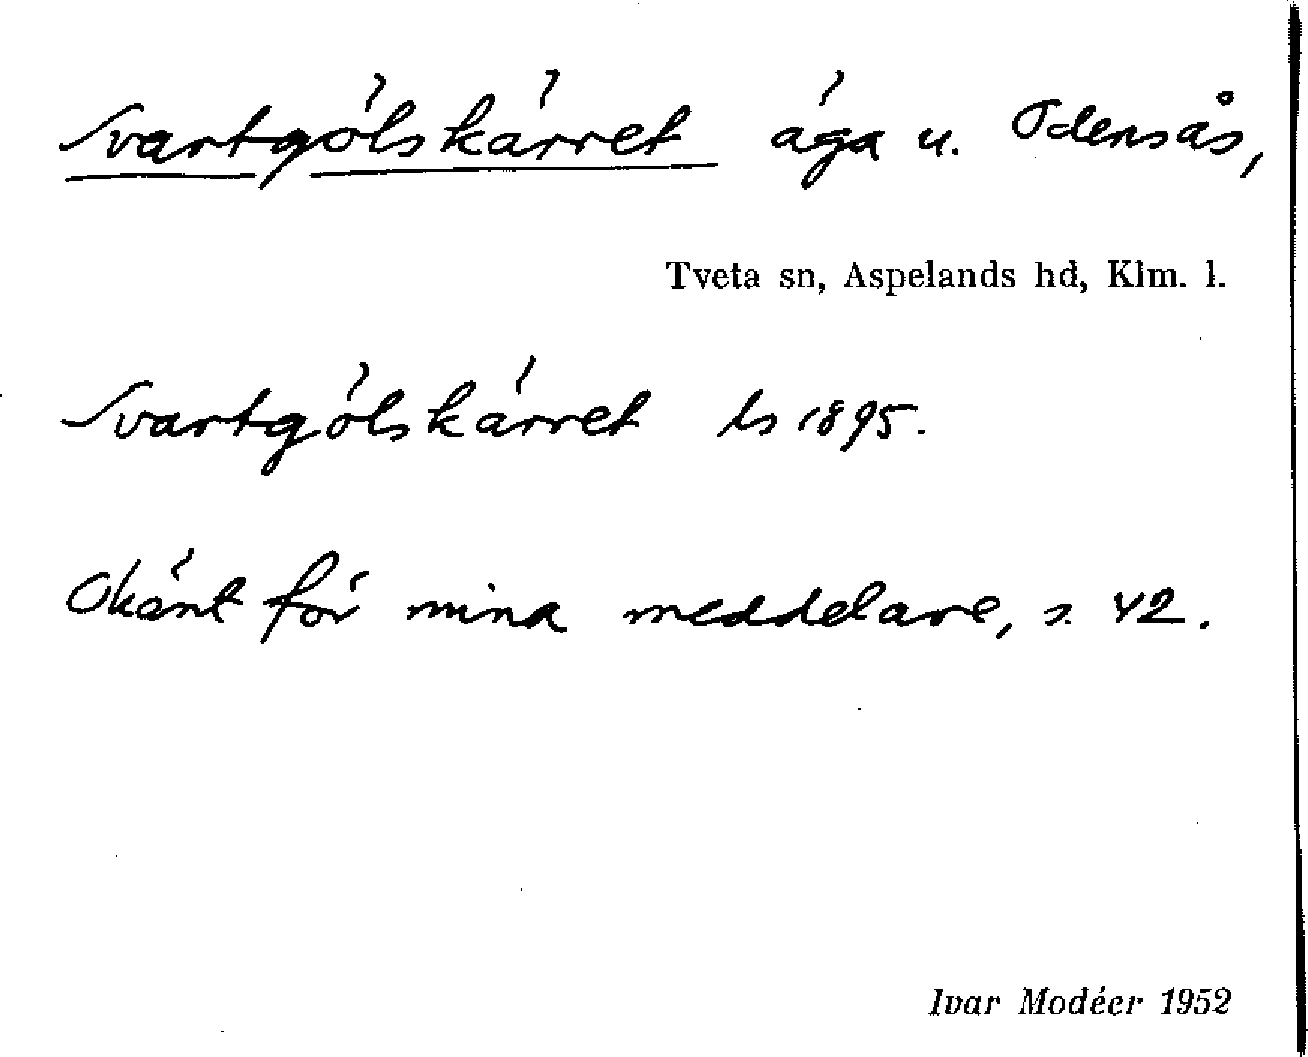 Svartgölskärret äga u. Odensås,
Tveta sn, Aspelands hd, Klm. l.
Svartgölskärret ls 1895.
Okänt för mina meddelare, s. 42.
Ivar Modéer 1952